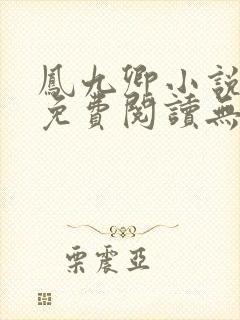 鳳九卿小說
免費閱讀無
栗震亞